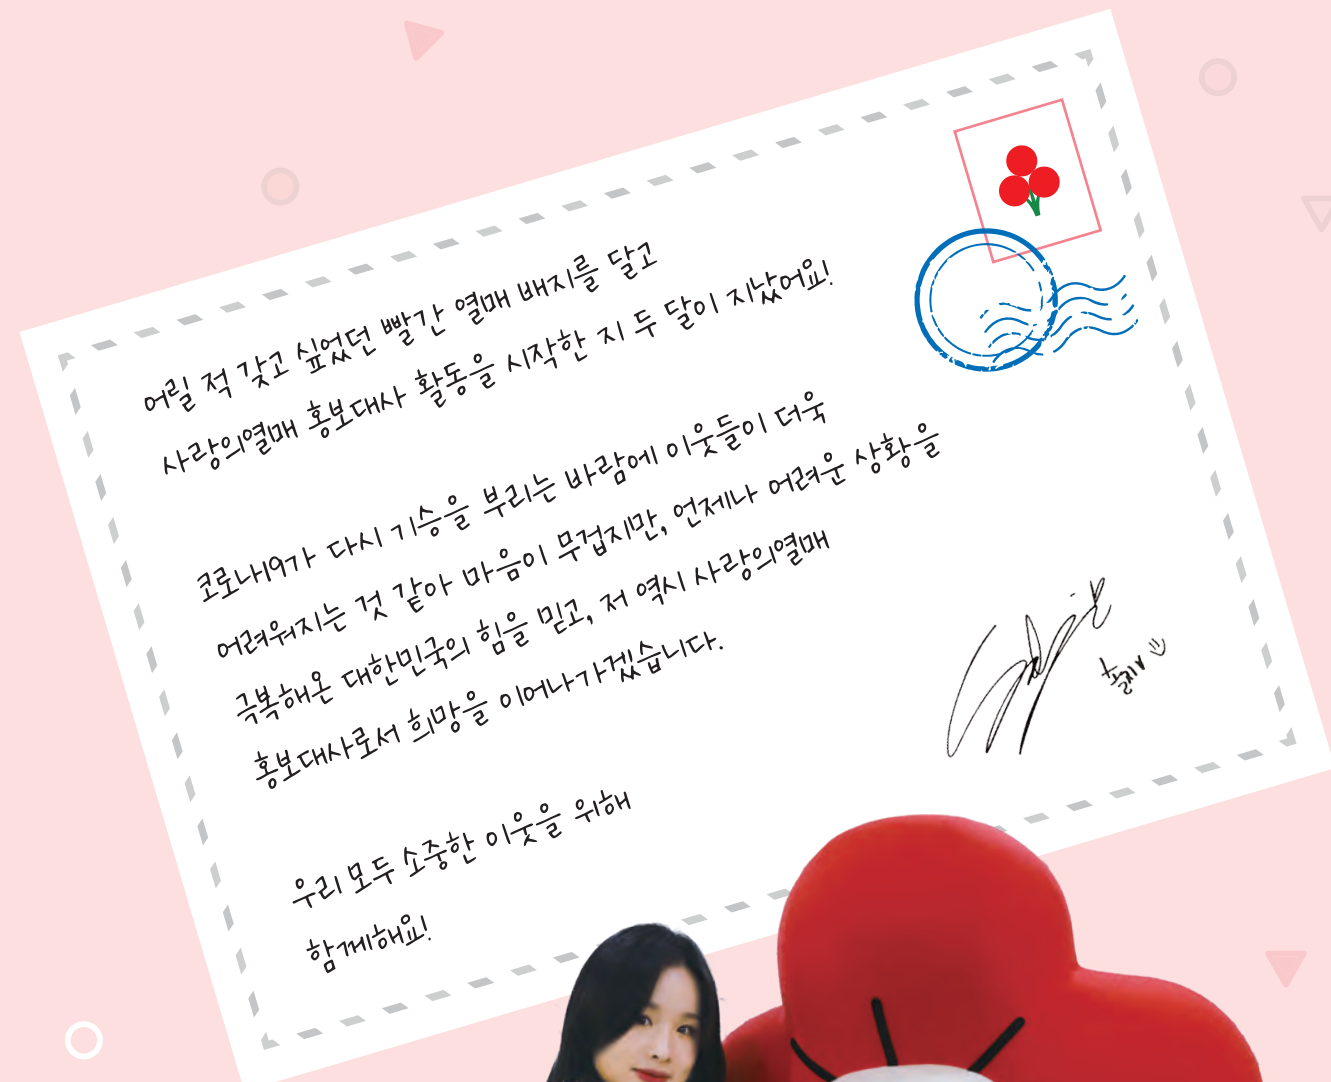 어릴 적 갖고 싶었던 빨간 열매 배지를 달고
사랑의열매 홍보대사 활동을 시작한 지 두 달이 지났어요!
코로나19가 다시 기승을 부리는 바람에 이웃들이 더욱
어려워지는 것 같아 마음이 무겁지만, 언제나 어려운 상황을
극복해온 대한민국의 힘을 믿고, 저 역시 사랑의열매
홍보대사로서 희망을 이어나가겠습니다.
우리 모두 소중한 이웃을 위해
함께해요!